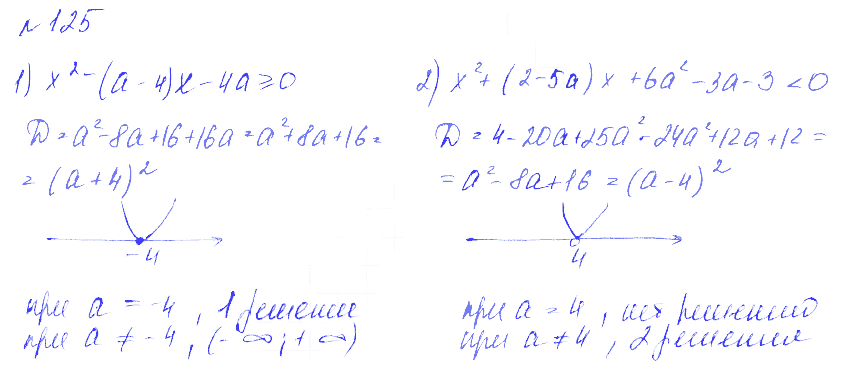 №125
1) x² - (a - 4)x - 4a ≥ 0
D = a² - 8a + 16 + 16a = a² + 8a + 16 =
= (a + 4)²
-4
при a = -4 , 1 решение
при a ≠ -4 , (-∞; +∞)
2) x² + (2 - 5a)x + 6a² - 3a - 3 < 0
D = 4 - 20a + 25a² - 24a² + 12a + 12 =
= a² - 8a + 16 = (a - 4)²
4
при a = 4 , нет решений
при a ≠ 4 , 2 решения